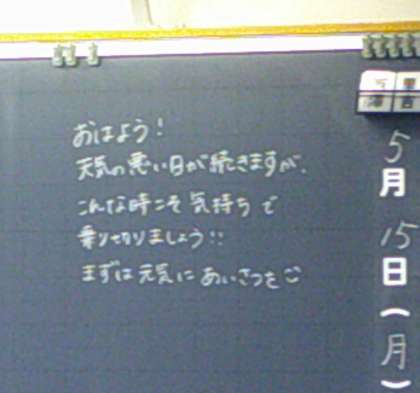 おはよう!
天気の悪い日が続きますが、
こんな時こそ気持ちで
乗り切りましょう!!
まずは元気にあいさつを☺
5月15日(月)